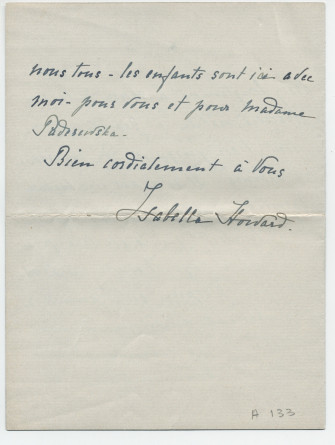 nous tous - les enfants sont ici avec
moi - pour vous et pour madame
Paderewska -
Bien cordialement à Vous
Isabella Howard.
A 133